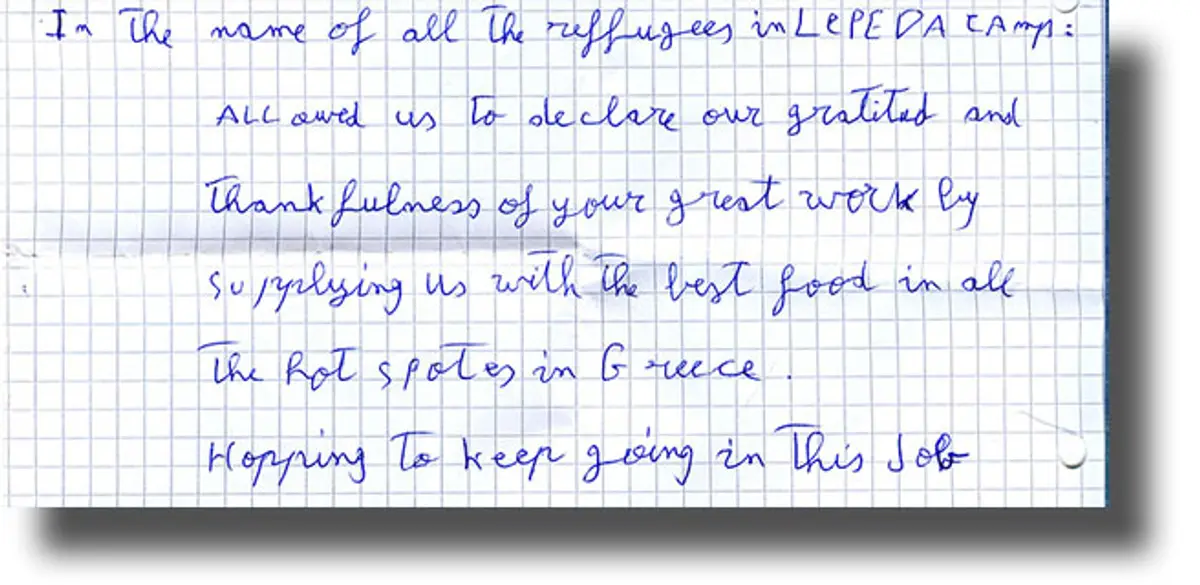 In The name of all The reffugees in LEPEDA CAmp:
ALLowed us To declare our gratited and
Thankfulness of your great work by
supplying us with The best food in all
The hot spotes in Greece.
Hopping To keep going in This Job